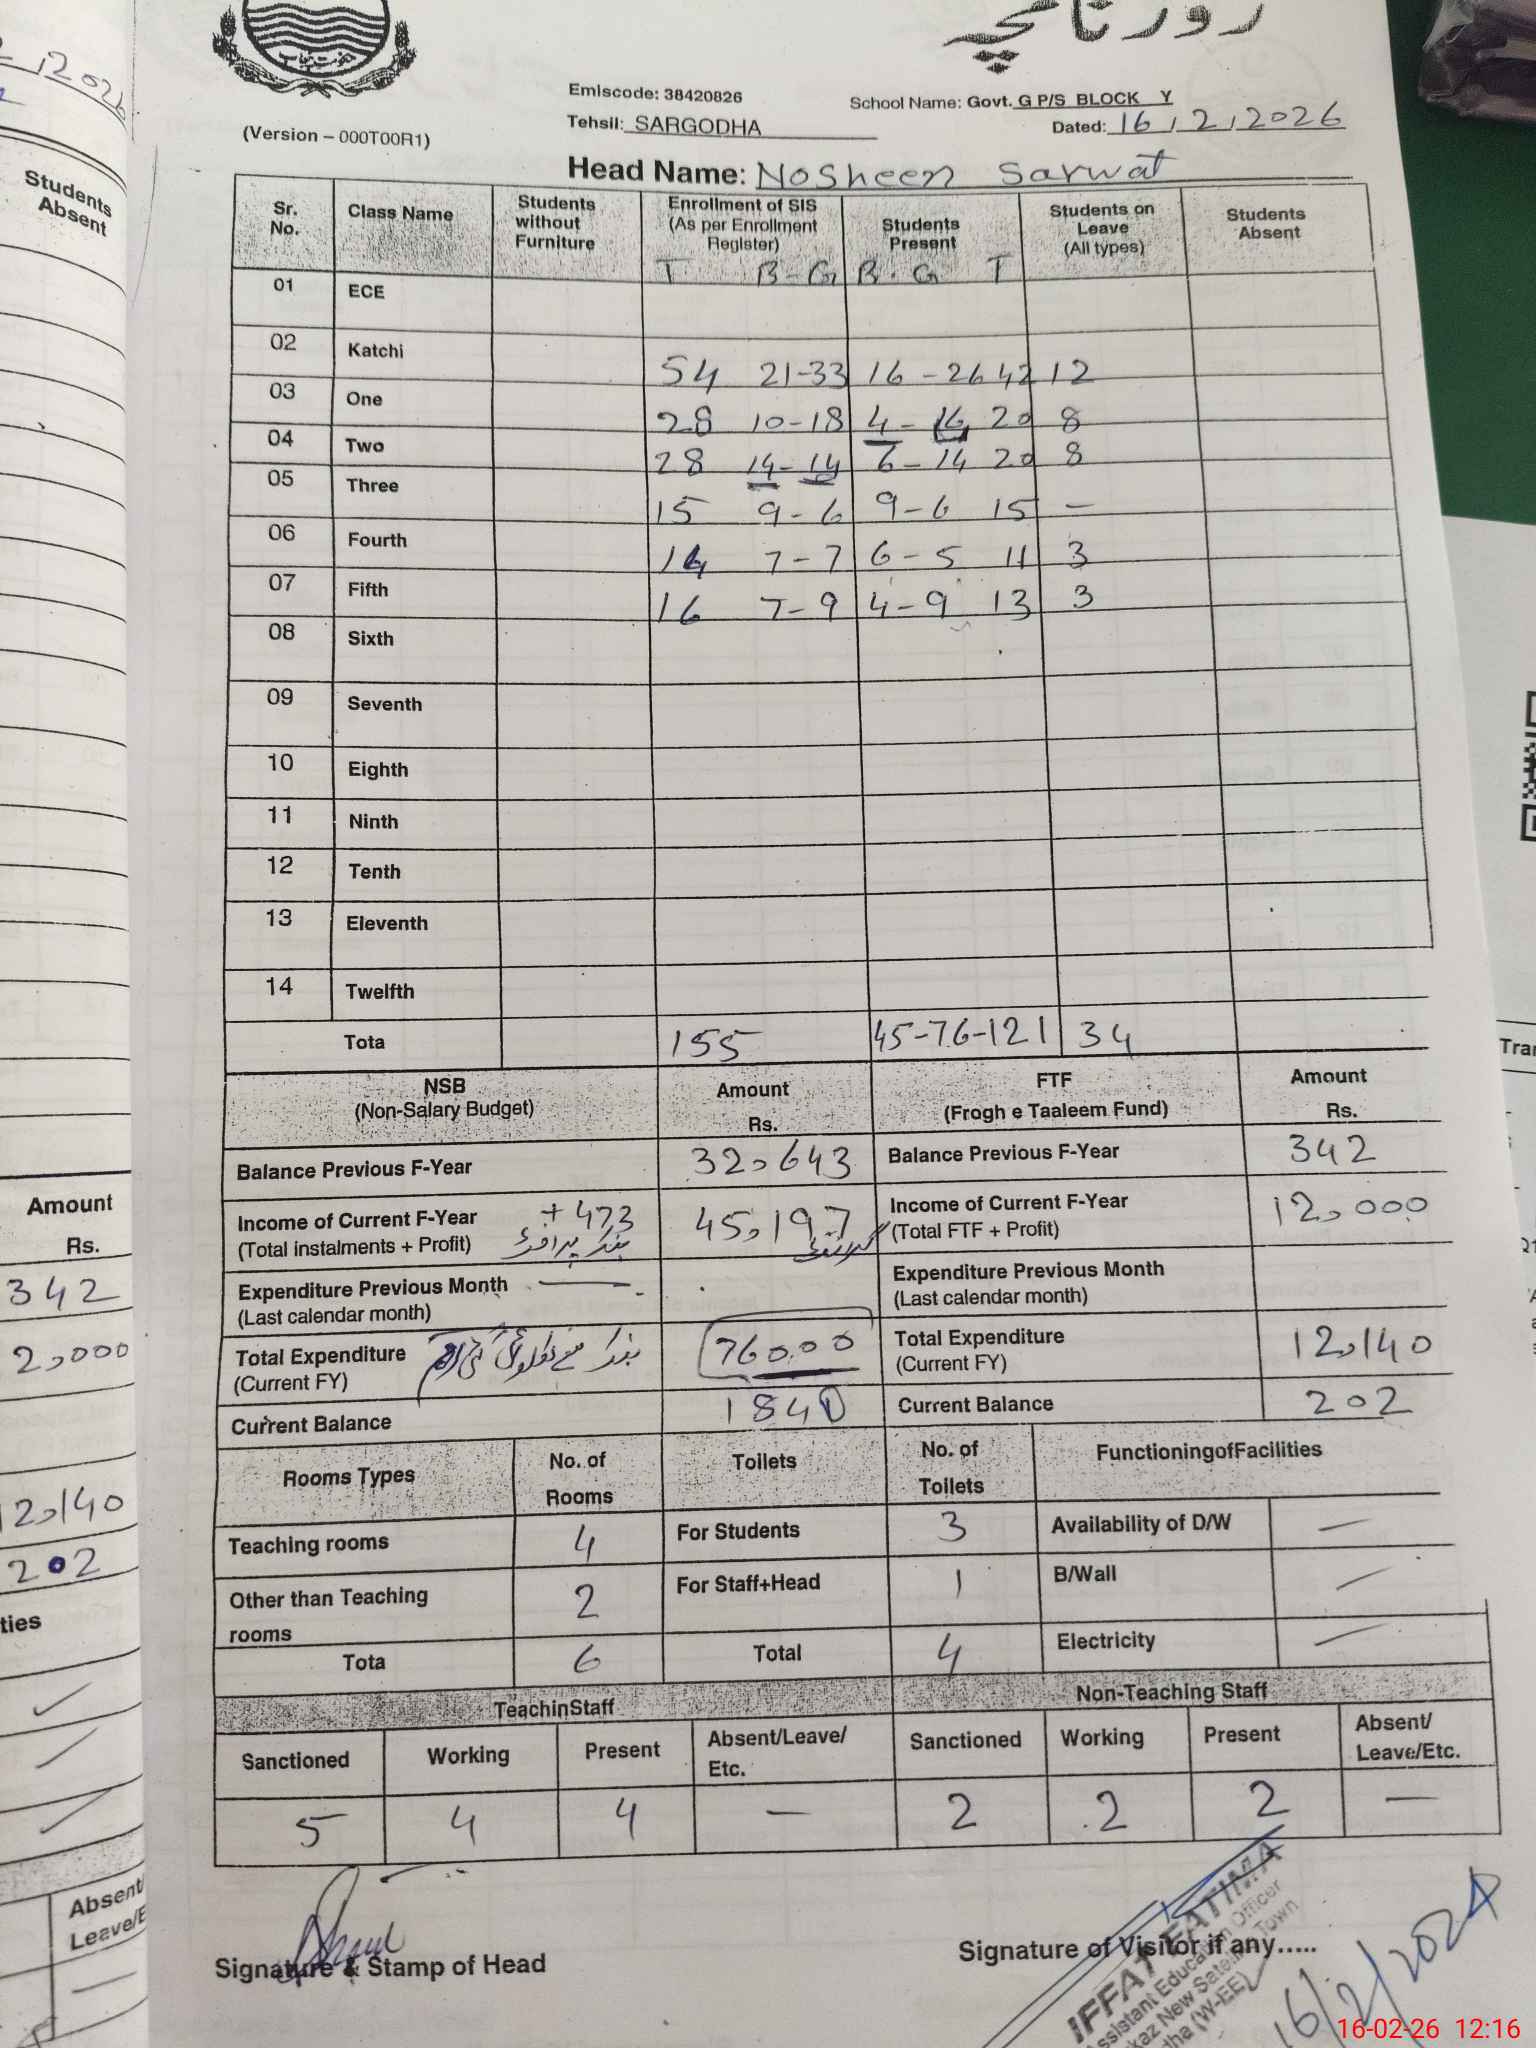 2,2026
حکومت پنجاب
روزنامچہ
Emiscode: 38420826
School Name: Govt. G P/S BLOCK Y
(Version – 000T00R1)
Tehsil: SARGODHA
Dated: 16,2,2026
Head Name: Nosheen Sarwat
Students Absent
Sr. No. Class Name Students without Furniture Enrollment of SIS (As per Enrollment Register) Students Present Students on Leave (All types) Students Absent
T B-G B-G T
01 ECE
02 Katchi 54 21-33 16-26 42 12
03 One 28 10-18 4-16 20 8
04 Two 28 14-14 6-14 20 8
05 Three 15 9-6 9-6 15 —
06 Fourth 14 7-7 6-5 11 3
07 Fifth 16 7-9 4-9 13 3
08 Sixth
09 Seventh
10 Eighth
11 Ninth
12 Tenth
13 Eleventh
14 Twelfth
Tota 155 45-76-121 34
NSB (Non-Salary Budget) Amount Rs. FTF (Frogh e Taaleem Fund) Amount Rs.
Balance Previous F-Year 32,643 Balance Previous F-Year 342
Income of Current F-Year (Total instalments + Profit) +473 45,197 Income of Current F-Year (Total FTF + Profit) 12,000
Expenditure Previous Month (Last calendar month) — Expenditure Previous Month (Last calendar month)
Total Expenditure (Current FY) 76000 Total Expenditure (Current FY) 12,140
Current Balance 1840 Current Balance 202
Rooms Types No. of Rooms Toilets No. of Toilets FunctioningofFacilities
Teaching rooms 4 For Students 3 Availability of D/W —
Other than Teaching rooms 2 For Staff+Head 1 B/Wall —
Tota 6 Total 4 Electricity —
TeachinStaff Non-Teaching Staff
Sanctioned Working Present Absent/Leave/Etc. Sanctioned Working Present Absent/Leave/Etc.
5 4 4 — 2 2 2 —
Signature & Stamp of Head
Signature of Visitor if any.....
IFFAT FATIMA
Assistant Education Officer
kaz New Satellite Town
dha (W-EE)
Amount
Rs.
342
2,000
12,140
202
ties
Absent/
Leave/E
Tran
16-02-26 12:16